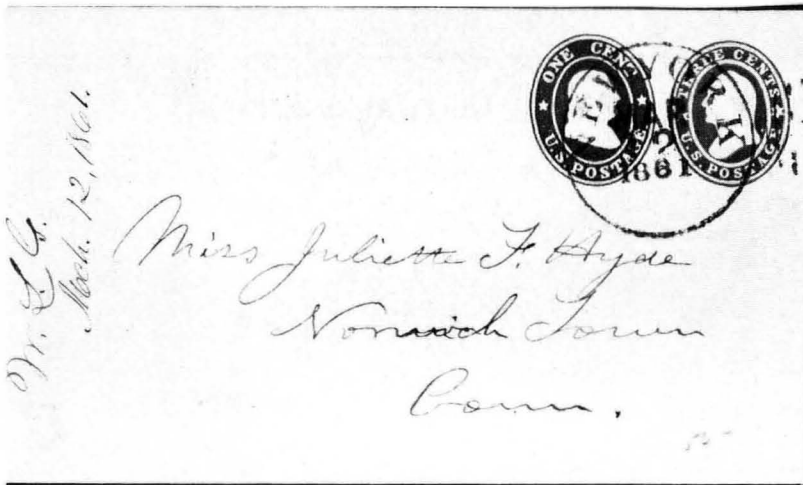 ONE CENT
U.S. POSTAGE
THREE CENTS
U.S. POSTAGE
NEW YORK
MAR
2
1861
Mch. 12, 1861.
Miss Juliette F. Hyde
Norwich Town
Conn.